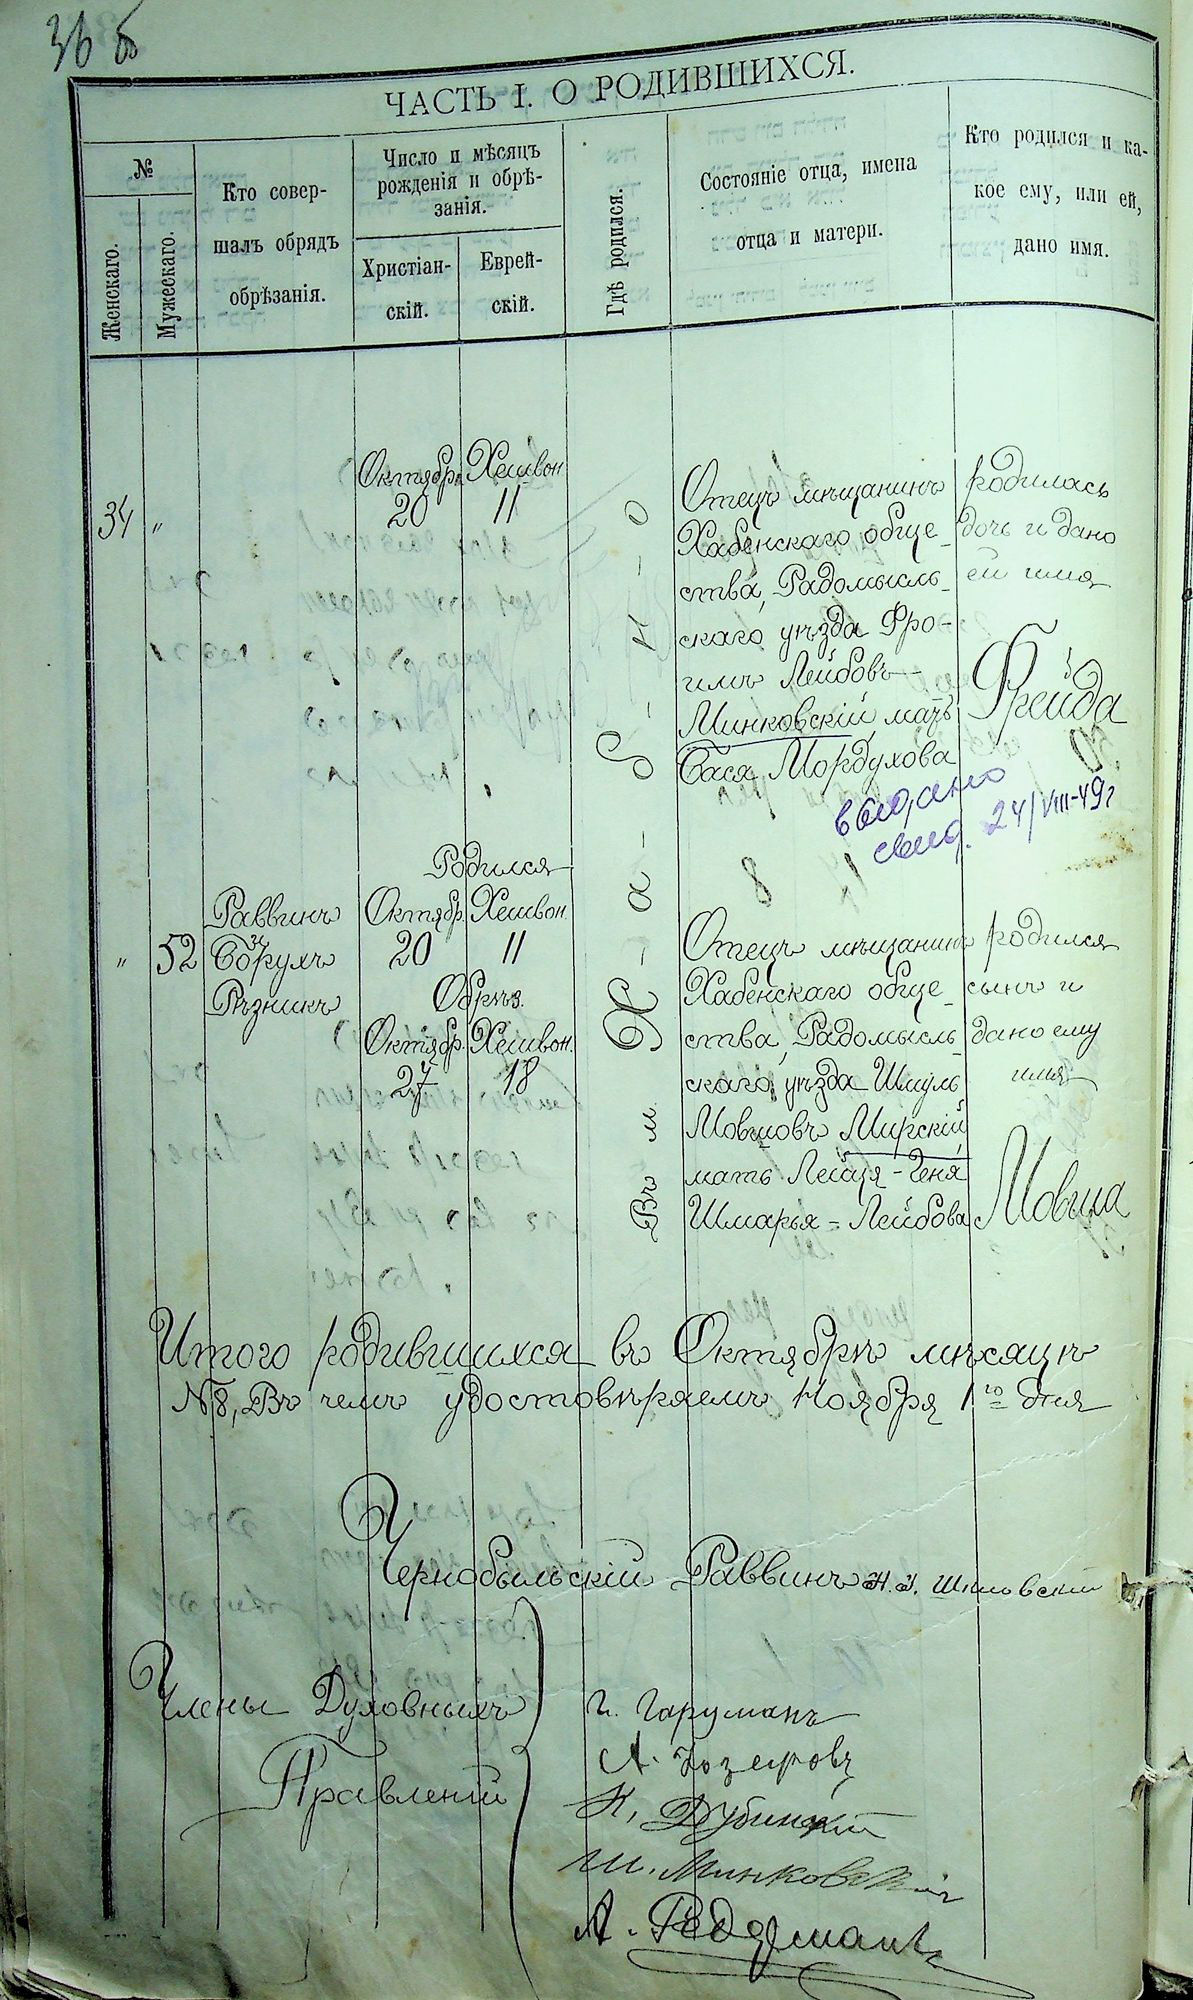 36 б
ЧАСТЬ I. О РОДИВШИХСЯ.
№
Женскаго.
Мужескаго.
Кто совер-
шалъ обрядъ
обрѣзанія.
Число и мѣсяцъ
рожденія и обрѣ-
занія.
Христіан-
скій.
Еврей-
скій.
Гдѣ родился.
Состояніе отца, имена
отца и матери.
Кто родился и ка-
кое ему, или ей,
дано имя.
34
"
Октября
20
Хешвон
11
Въ м. Х-а-б-н-о
Отецъ мѣщанинъ
Хабенскаго обще-
ства, Радомысль-
скаго уѣзда Фро-
имъ Лейбовъ-
Минковскій, мать
Бася Мордухова
родилась
дочь и дано
ей имя
Фрейда
выдано
свид. 24/VIII-49г
"
52
Раввинъ
Борухъ
Рѣзникъ
Родился
Октябр. Хешвон.
20 11
Обрѣз.
Октябр. Хешвон.
27 18
Отецъ мѣщанинъ
Хабенскаго обще-
ства, Радомысль-
скаго, уѣзда Шмуль
Мовшовъ Мирскій
мать Лейця-Геня
Шмарья-Лейбова
родился
сынъ и
дано ему
имя
Мовша
Итого родившихся въ Октябрѣ мѣсяцѣ
№8, Въ чемъ удостовѣряемъ Ноября 1го дня
Чернобыльскій Раввинъ
Члены Духовныхъ
Правленій
К. Дубинскій
Ш. Минковскій